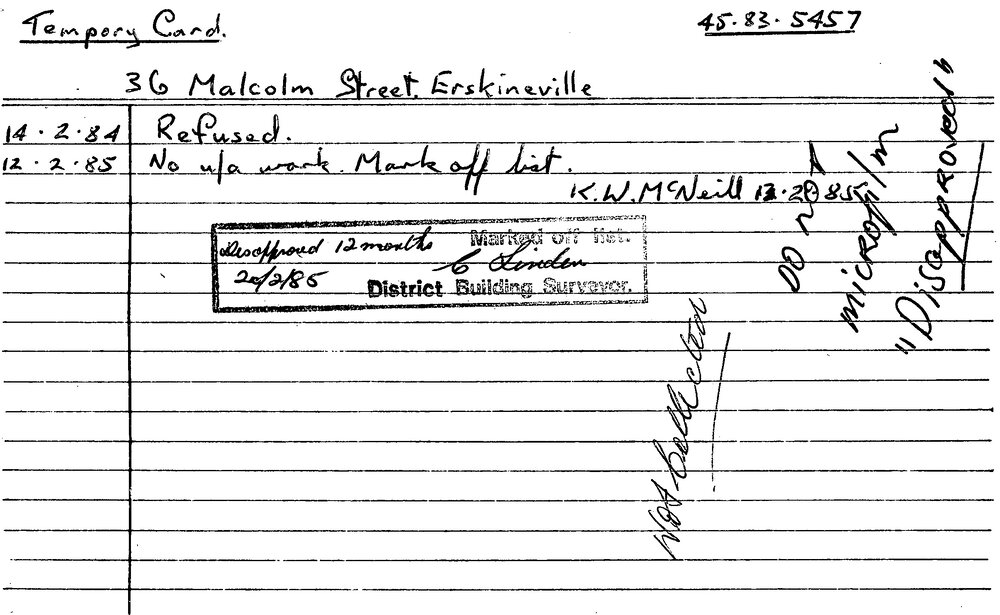 Tempory Card.
45.83.5457
36 Malcolm Street, Erskineville
14.2.84 Refused.
12.2.85 No u/a work. Mark off list.
K.W. McNeill 12.2.85
Disapproved 12 months Marked off list.
20/2/85 C Linden
District Building Surveyor.
DO NOT
microfilm
"Disapproved"
Not Collected